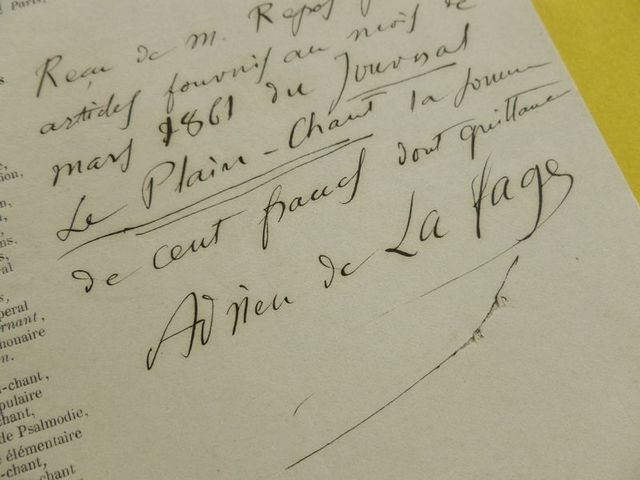 Paris,
Reçu de M. Repos
articles fournis au mois de
mars 1861 du Journal
Le Plain-Chant la somme
de cent francs dont quittance
Adrien de La Fage
ion,
ns.
ral
peral
rnant,
honaire
n.
-chant,
pulaire
chant,
de Psalmodie,
élémentaire
-chant,
chant